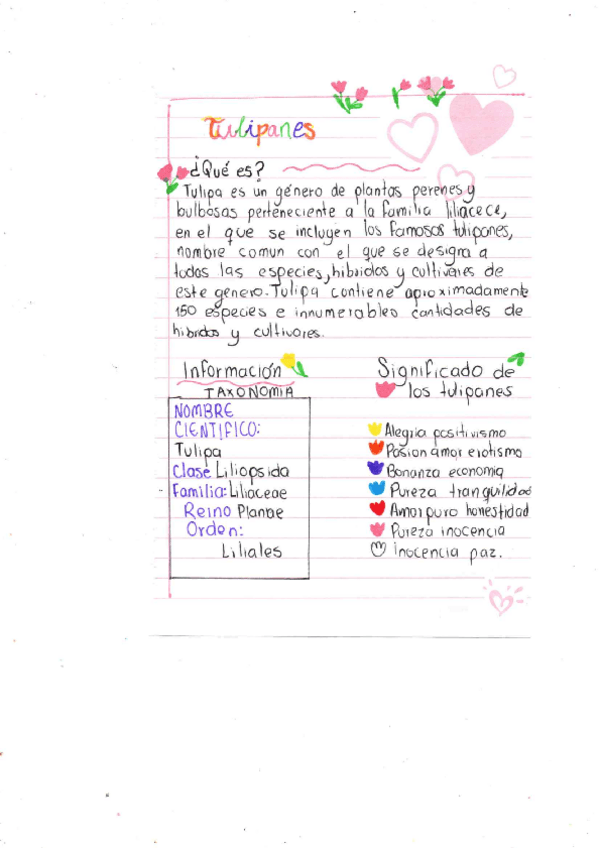 Tulipanes
¿Qué es?
Tulipa es un género de plantas perenes y
bulbosas perteneciente a la familia liliacece,
en el que se incluyen los famosos tulipones,
nombre comun con el que se designa a
todas las especies, hibridos y cultivares de
este genero. Tulipa contiene aproximadamente
150 especies e innumerables cantidades de
hibridos y cultivores.
Información
TAXONOMIA
NOMBRE
CIENTIFICO:
Tulipa
Clase Liliopsida
Familia: Liliaceae
Reino Plantae
Orden:
Liliales
Significado de
los tulipanes
Alegria positivismo
Pasion amor erotismo
Bonanza economia
Pureza tranquilidad
Amor puro honestidad
Pureza inocencia
inocencia paz.